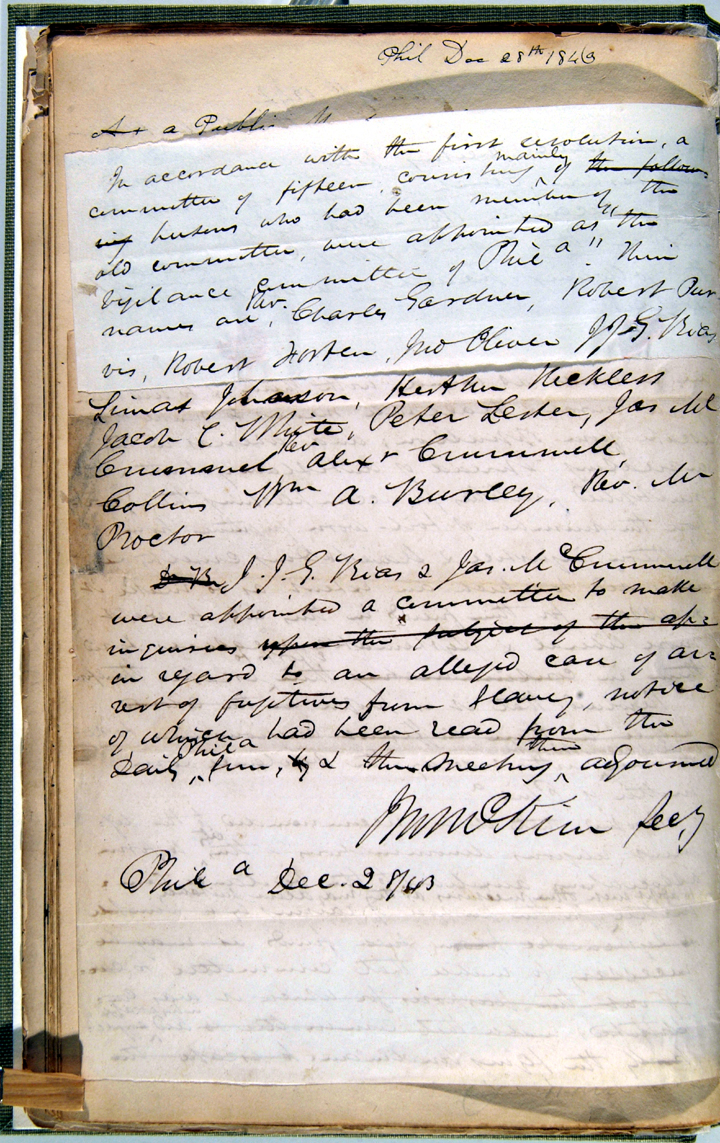 Phil Dec 28th 1843
At a Public
In accordance with the first resolution, a
committee of fifteen, consisting mainly of the follow
ing persons who had been members of the
old committee, were appointed as "the
Vigilance Committee of Phila" Their
names are, Rev. Charles Gardner, Robert Pur
vis, Robert Forten, Jno Oliver J.J.G. Bias
Limas Johnson, Hesther Reckless
Jacob C. White, Peter Lester, Jas Mc
Crummel Rev Alexr Crummell
Collins Wm A. Burley, Rev. Mr
Proctor
J. J. G. Bias & Jas. McCrummell
were appointed a committee to make
inquiries upon the subject of the ar=
in regard to an alleged case of ar=
rest of fugitives from slavery, notice
of which had been read from the
Daily Phila Sun, by & the meeting then adjourned
J M McKim Secy
Phila Dec. 28/43